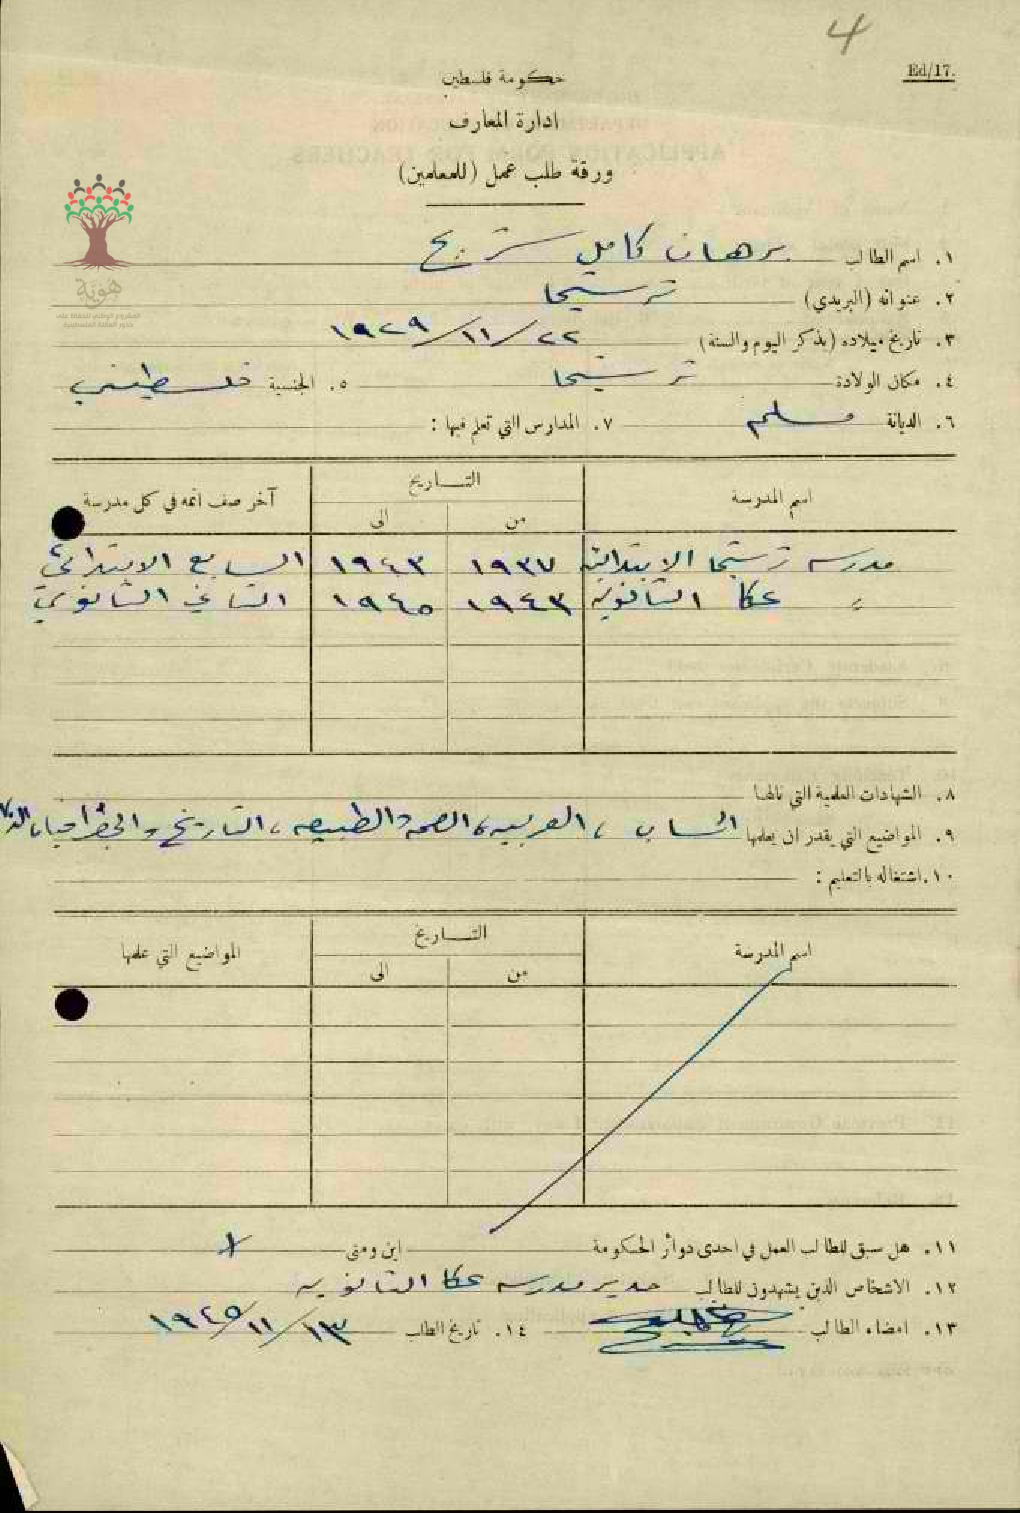 4
Ed/17.
حكومة فلسطين
ادارة المعارف
ورقة طلب عمل (للمعلمين)
هوية
المشروع الوطني للحفاظ على
جذور العائلة الفلسطينية
١. اسم الطالب برهان كامل شريح
٢. عنوانه (البريدي) ترشيحا
٣. تاريخ ميلاده (بذكر اليوم والسنة) ٢٢/١١/١٩٢٩
٤. مكان الولادة ترشيحا ٥. الجنسية فلسطيني
٦. الديانة مسلم ٧. المدارس التي تعلم فيها :
اسم المدرسة التــاريخ آخر صف اتمه في كل مدرسة
من الى
مدرسه ترشيحا الابتدائية ١٩٣٧ ١٩٤٣ السابع الابتدائي
〃 عكا الثانويه ١٩٤٣ ١٩٤٥ الثاني الثانوي
٨. الشهادات العلمية التي نالها
٩. المواضيع التي يقدر ان يعلمها الحساب ، العربيه ، الصحه والطبيعه ، التاريخ والجغرافيا ،
١٠. اشتغاله بالتعليم :
اسم المدرسة التــاريخ المواضيع التي علمها
من الى
١١. هل سبق للطالب العمل في احدى دوائر الحكومة اين ومتى
١٢. الاشخاص الذين يشهدون للطالب مدير مدرسه عكا الثانويه
١٣. امضاء الطالب ١٤. تاريخ الطلب ١٣/١١/١٩٤٥